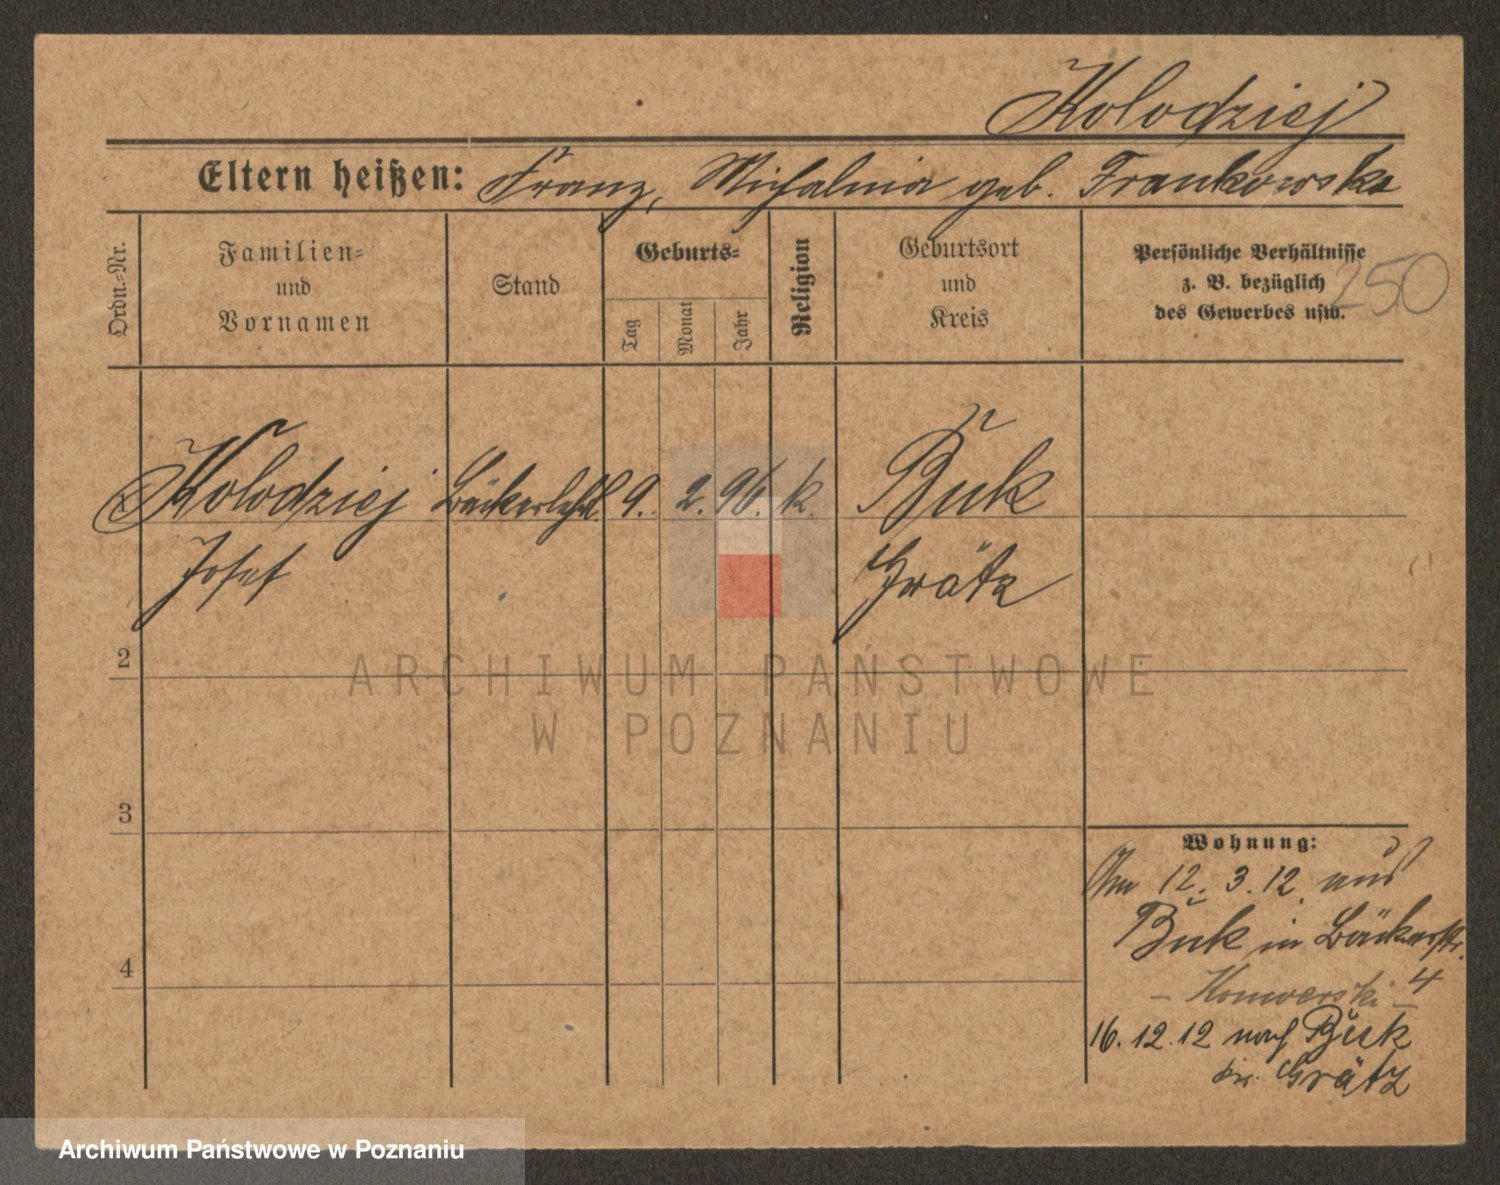 Kolodziej
Eltern heißen: Franz, Michalina geb. Frankowska
Ordn.-Nr.
Familien-
und
Vornamen
Stand
Geburts-
Tag
Monat
Jahr
Religion
Geburtsort
und
Kreis
Persönliche Verhältnisse
z. B. bezüglich
des Gewerbes usw.
250
1 Kolodziej Bäckerlehrl. 9. 2. 96. k. Buk
Josef Grätz
2
3
4
Wohnung:
Am 12. 3. 12 aus
Buk in Bäckerstr.
- Komverski - 4
16. 12. 12 nach Buk
Kr. Grätz
ARCHIWUM PAŃSTWOWE
W POZNANIU
Archiwum Państwowe w Poznaniu